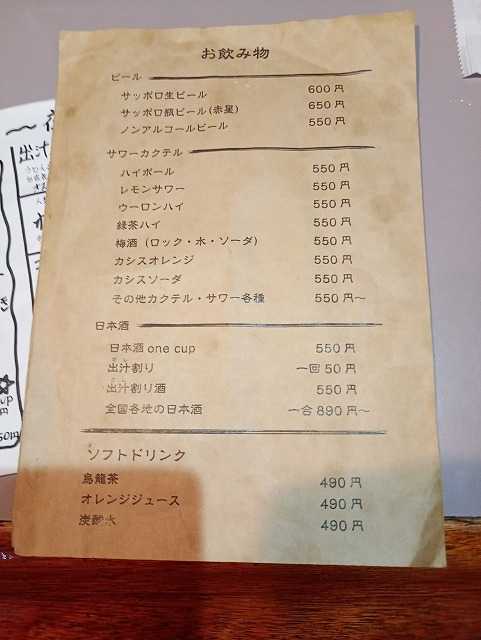 お飲み物
ビール
サッポロ生ビール 600円
サッポロ瓶ビール(赤星) 650円
ノンアルコールビール 550円
サワーカクテル
ハイボール 550円
レモンサワー 550円
ウーロンハイ 550円
緑茶ハイ 550円
梅酒 (ロック・水・ソーダ) 550円
カシスオレンジ 550円
カシスソーダ 550円
その他カクテル・サワー各種 550円〜
日本酒
日本酒 one cup 550円
出汁割り 一回 50円
出汁割り酒 550円
全国各地の日本酒 一合 890円〜
ソフトドリンク
烏龍茶 490円
オレンジジュース 490円
炭酸水 490円
出汁